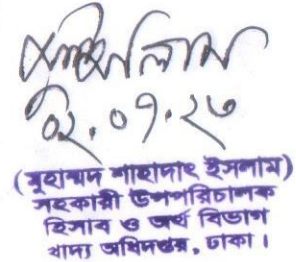 ০২.০৭.২৩
(মুহাম্মদ শাহাদাৎ ইসলাম)
সহকারী উপপরিচালক
হিসাব ও অর্থ বিভাগ
খাদ্য অধিদপ্তর, ঢাকা।